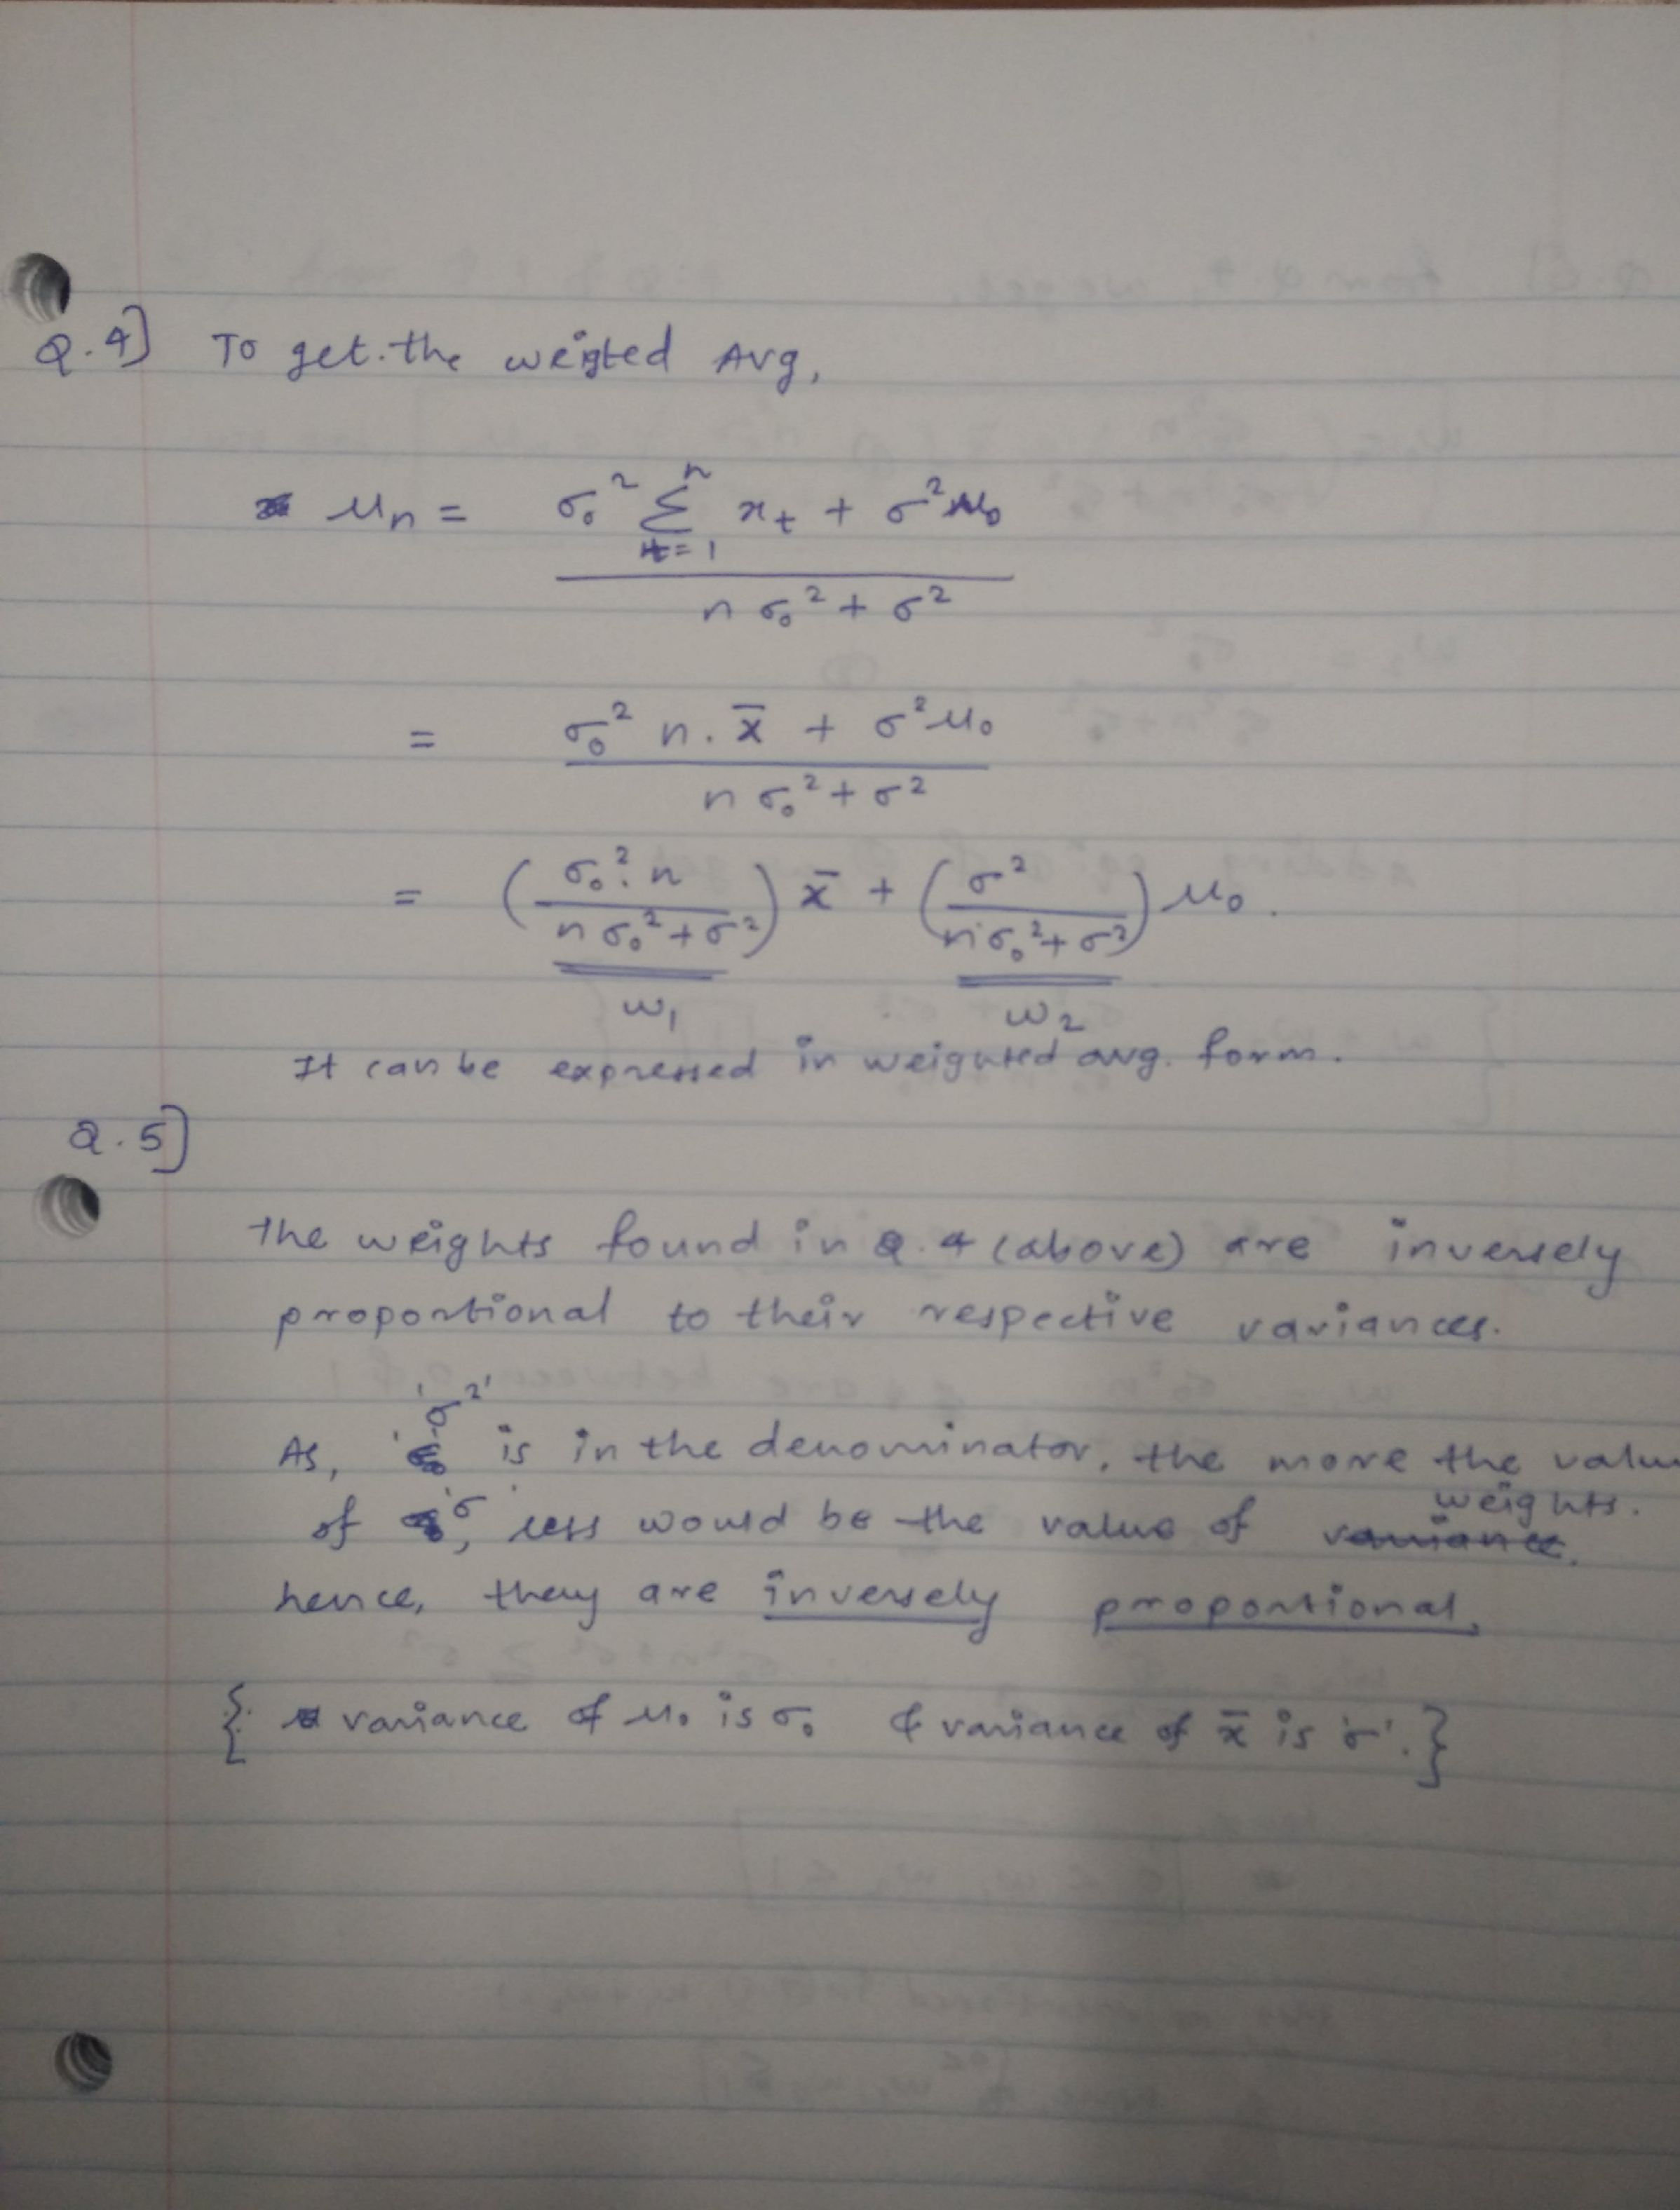 Q.4] To get the weigted Avg,
μn = σ₀² Σ xt + σ²μ₀
n
t=1
n σ₀² + σ²
= σ₀² n . x̄ + σ²μ₀
n σ₀² + σ²
= (σ₀². n / n σ₀² + σ²) x̄ + (σ² / n σ₀² + σ²) μ₀.
w₁ w₂
It can be expressed in weighted avg. form.
Q.5]
The weights found in Q.4 (above) are inversely
proportional to their respective variances.
As, 'σ²' is in the denominator, the more the value
of 'σ', less would be the value of weights.
hence, they are inversely proportional.
{ variance of μ₀ is σ₀ & variance of x̄ is 'σ'. }